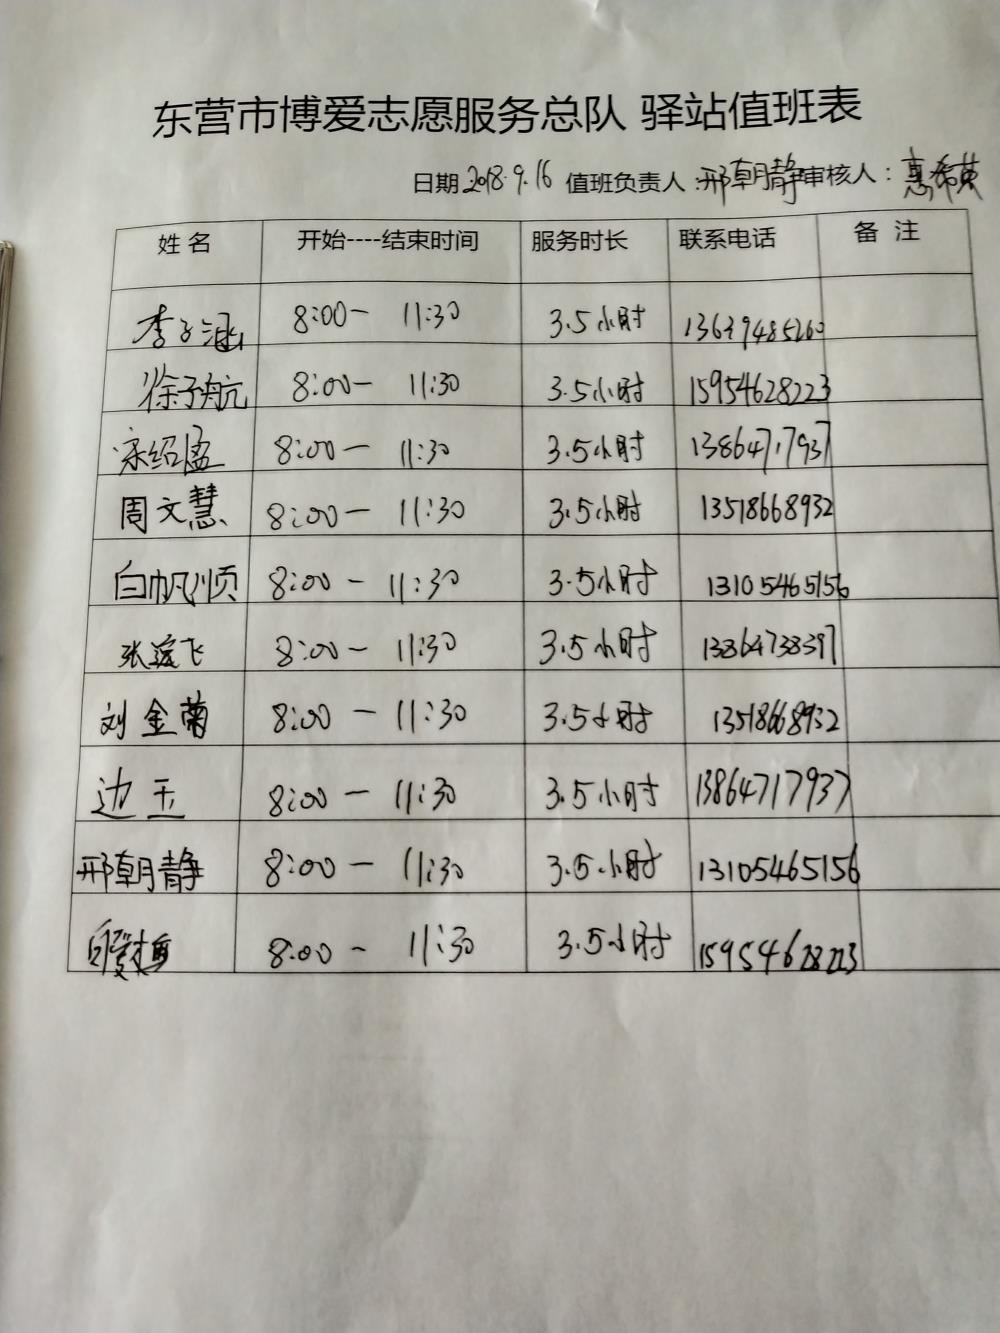 东营市博爱志愿服务总队 驿站值班表
日期 2018.9.16 值班负责人：邢朝静 审核人：惠希英
姓名 开始----结束时间 服务时长 联系电话 备注
李子涵 8:00— 11:30 3.5小时 13639485260
徐子航 8:00— 11:30 3.5小时 15954628223
宋绍孟 8:00— 11:30 3.5小时 13864717937
周文慧 8:00— 11:30 3.5小时 13518668932
白帆顺 8:00— 11:30 3.5小时 13105465156
张远飞 8:00— 11:30 3.5小时 13864738397
刘金菊 8:00— 11:30 3.5小时 13518668932
边玉 8:00— 11:30 3.5小时 13864717937
邢朝静 8:00— 11:30 3.5小时 13105465156
8:00— 11:30 3.5小时 15954628223